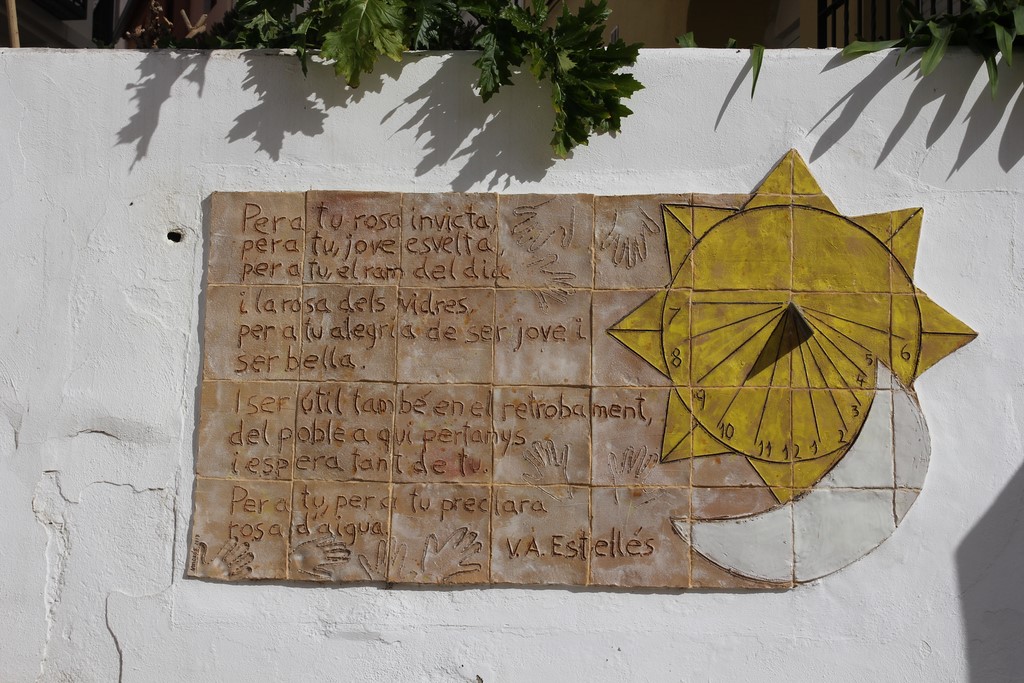 Per a tu rosa invicta,
per a tu, jove esvelta
per a tu, el ram del dia
i la rosa dels vidres,
per a tu alegria de ser jove i
ser bella.
I ser útil també en el retrobament,
del poble a qui pertanys
i espera tant de tu.
Per a tu, per a tu preclara
rosa d'aigua
V.A. Estellés
7
8
9
10
11
12
1
2
3
4
5
6